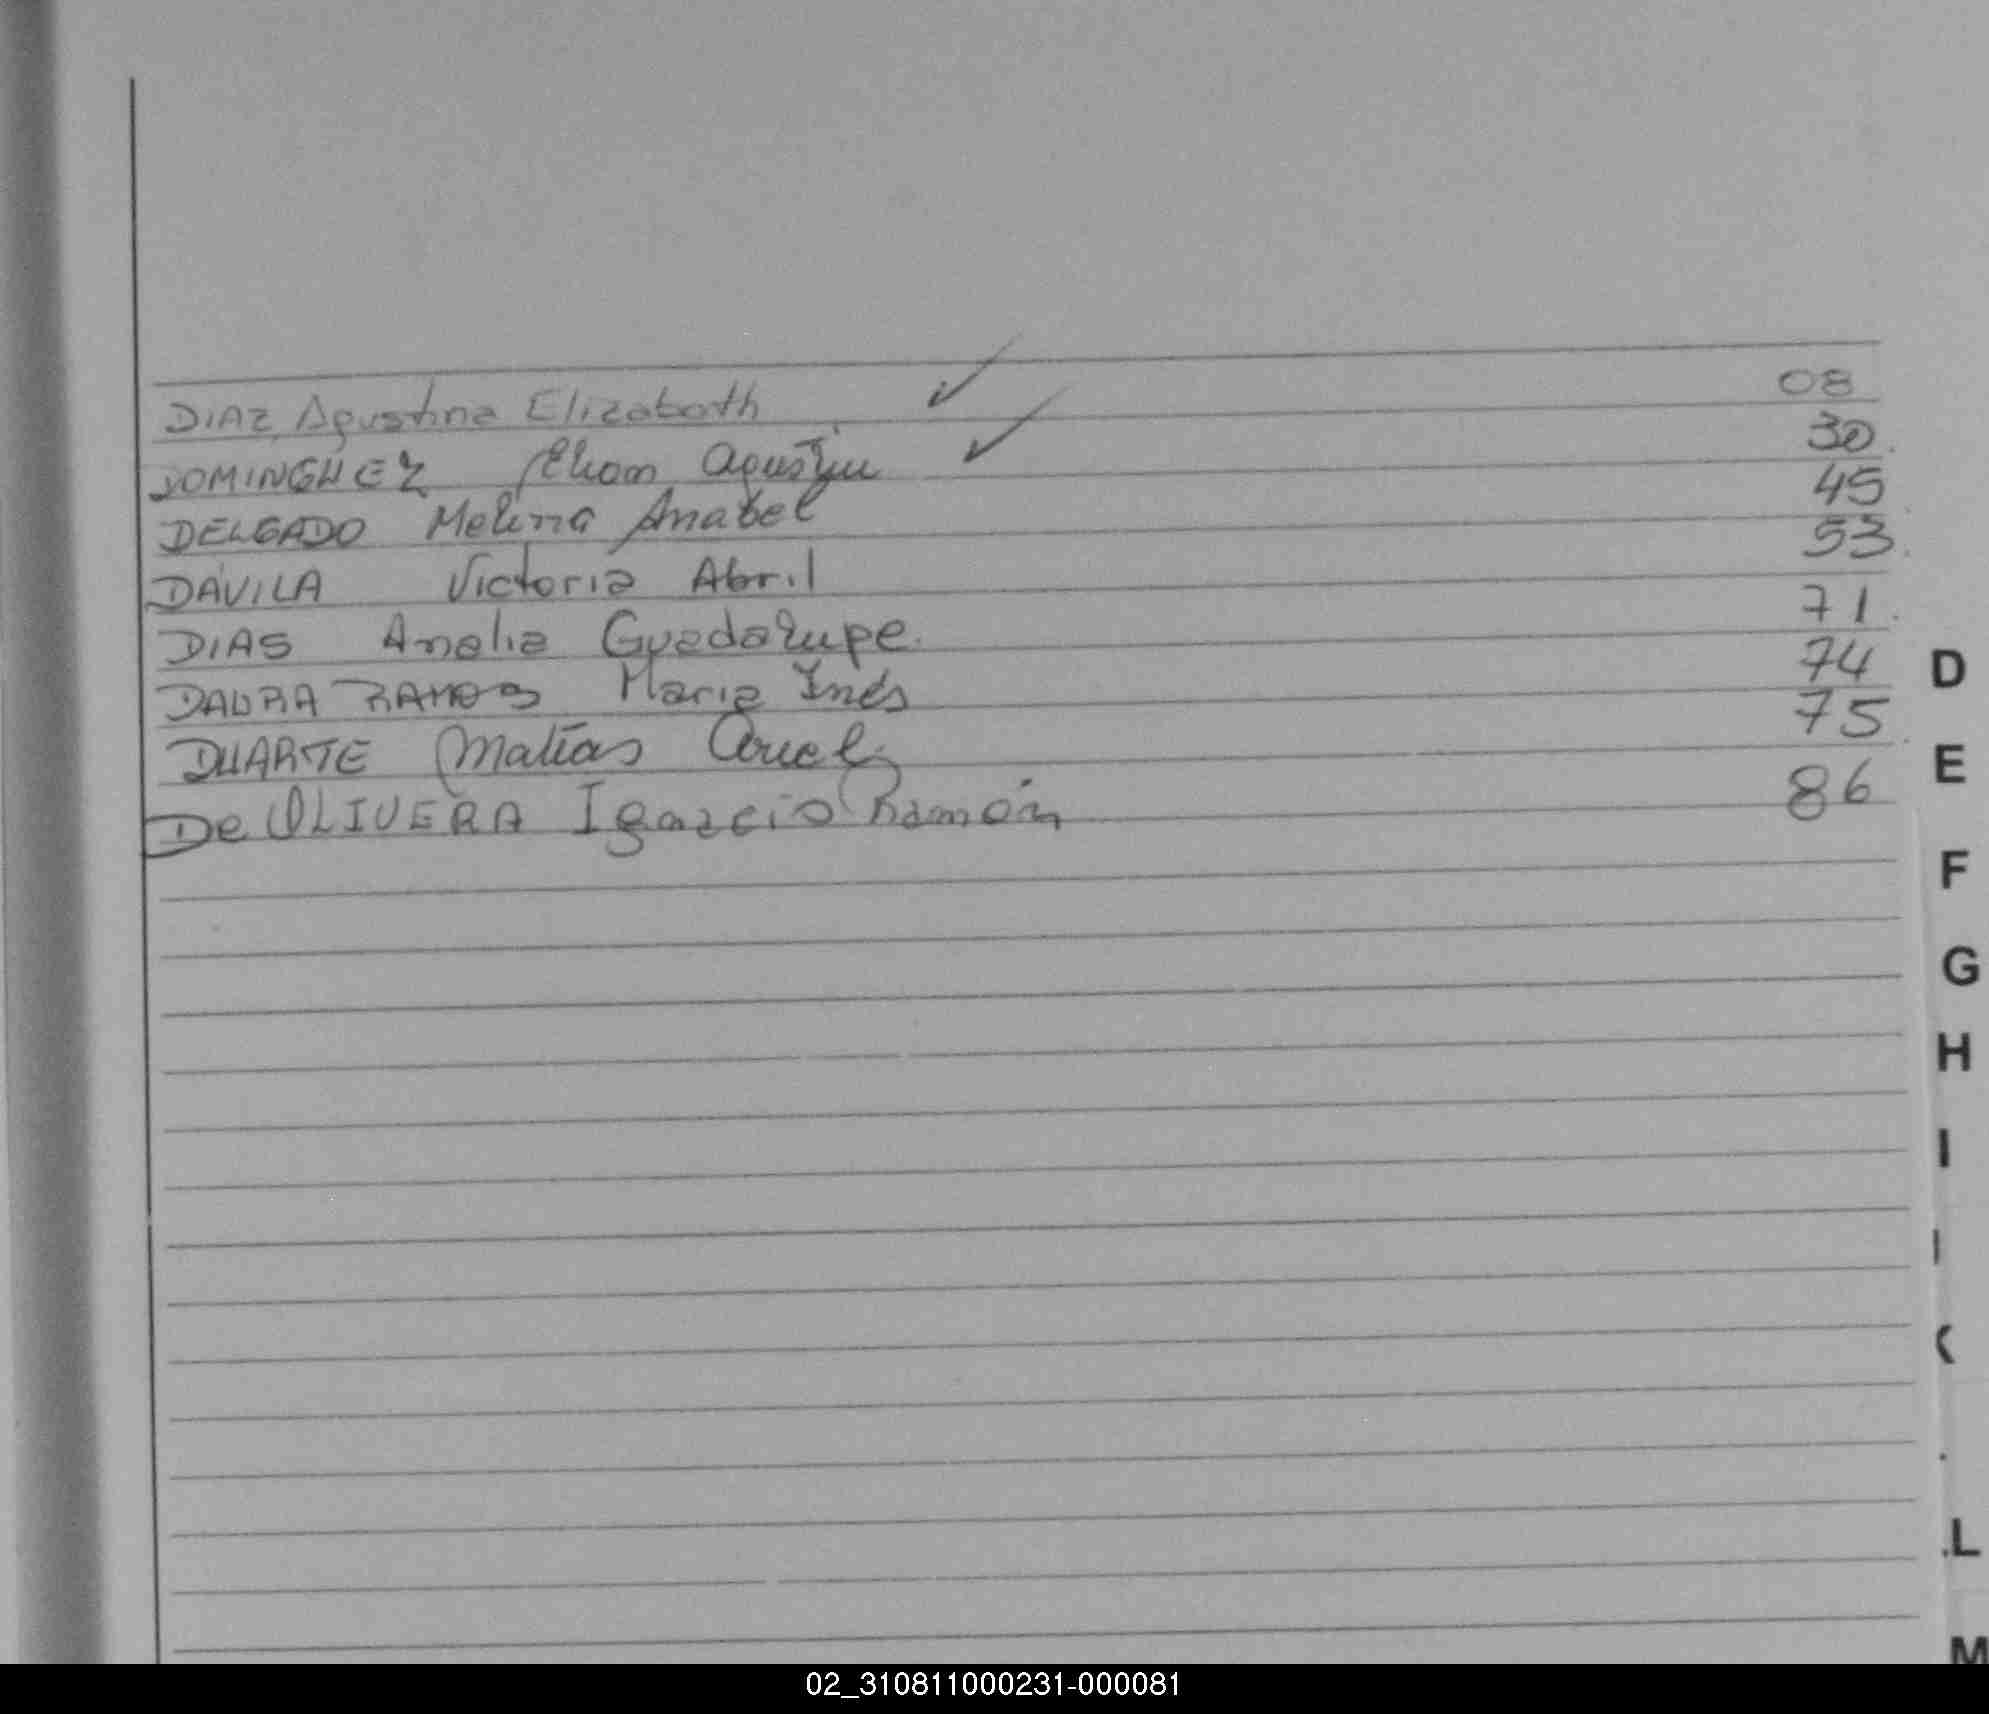 DIAZ, Agustina Elizabeth ✓ 08
DOMINGUEZ Ehom Agustín ✓ 30
DELGADO Melina Anabel 45
DÁVILA Victoria Abril 53
DIAS Analia Guadalupe. 71
DAURA RAMOS Maria Inés 74
DUARTE Matías Ariel 75
De OLIVERA Ignazcio Ramón 86
D
E
F
G
H
I
L
M
02_310811000231-000081